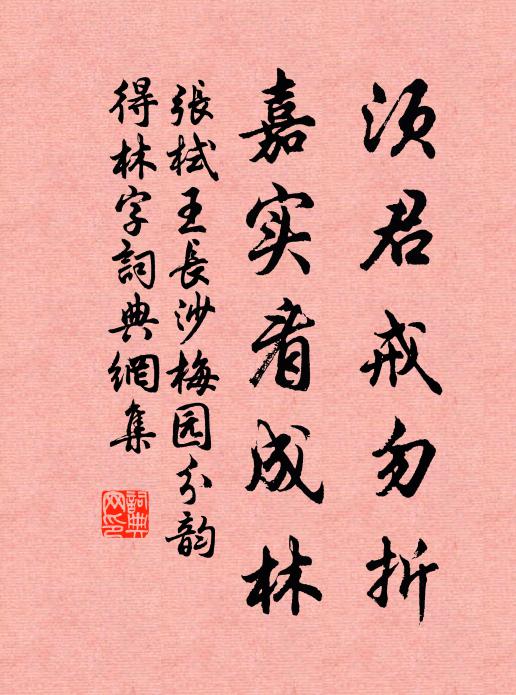 须君戒勿折
嘉实看成林
張栻王長沙梅园分韵
得林字詞典網集
詞典
网印